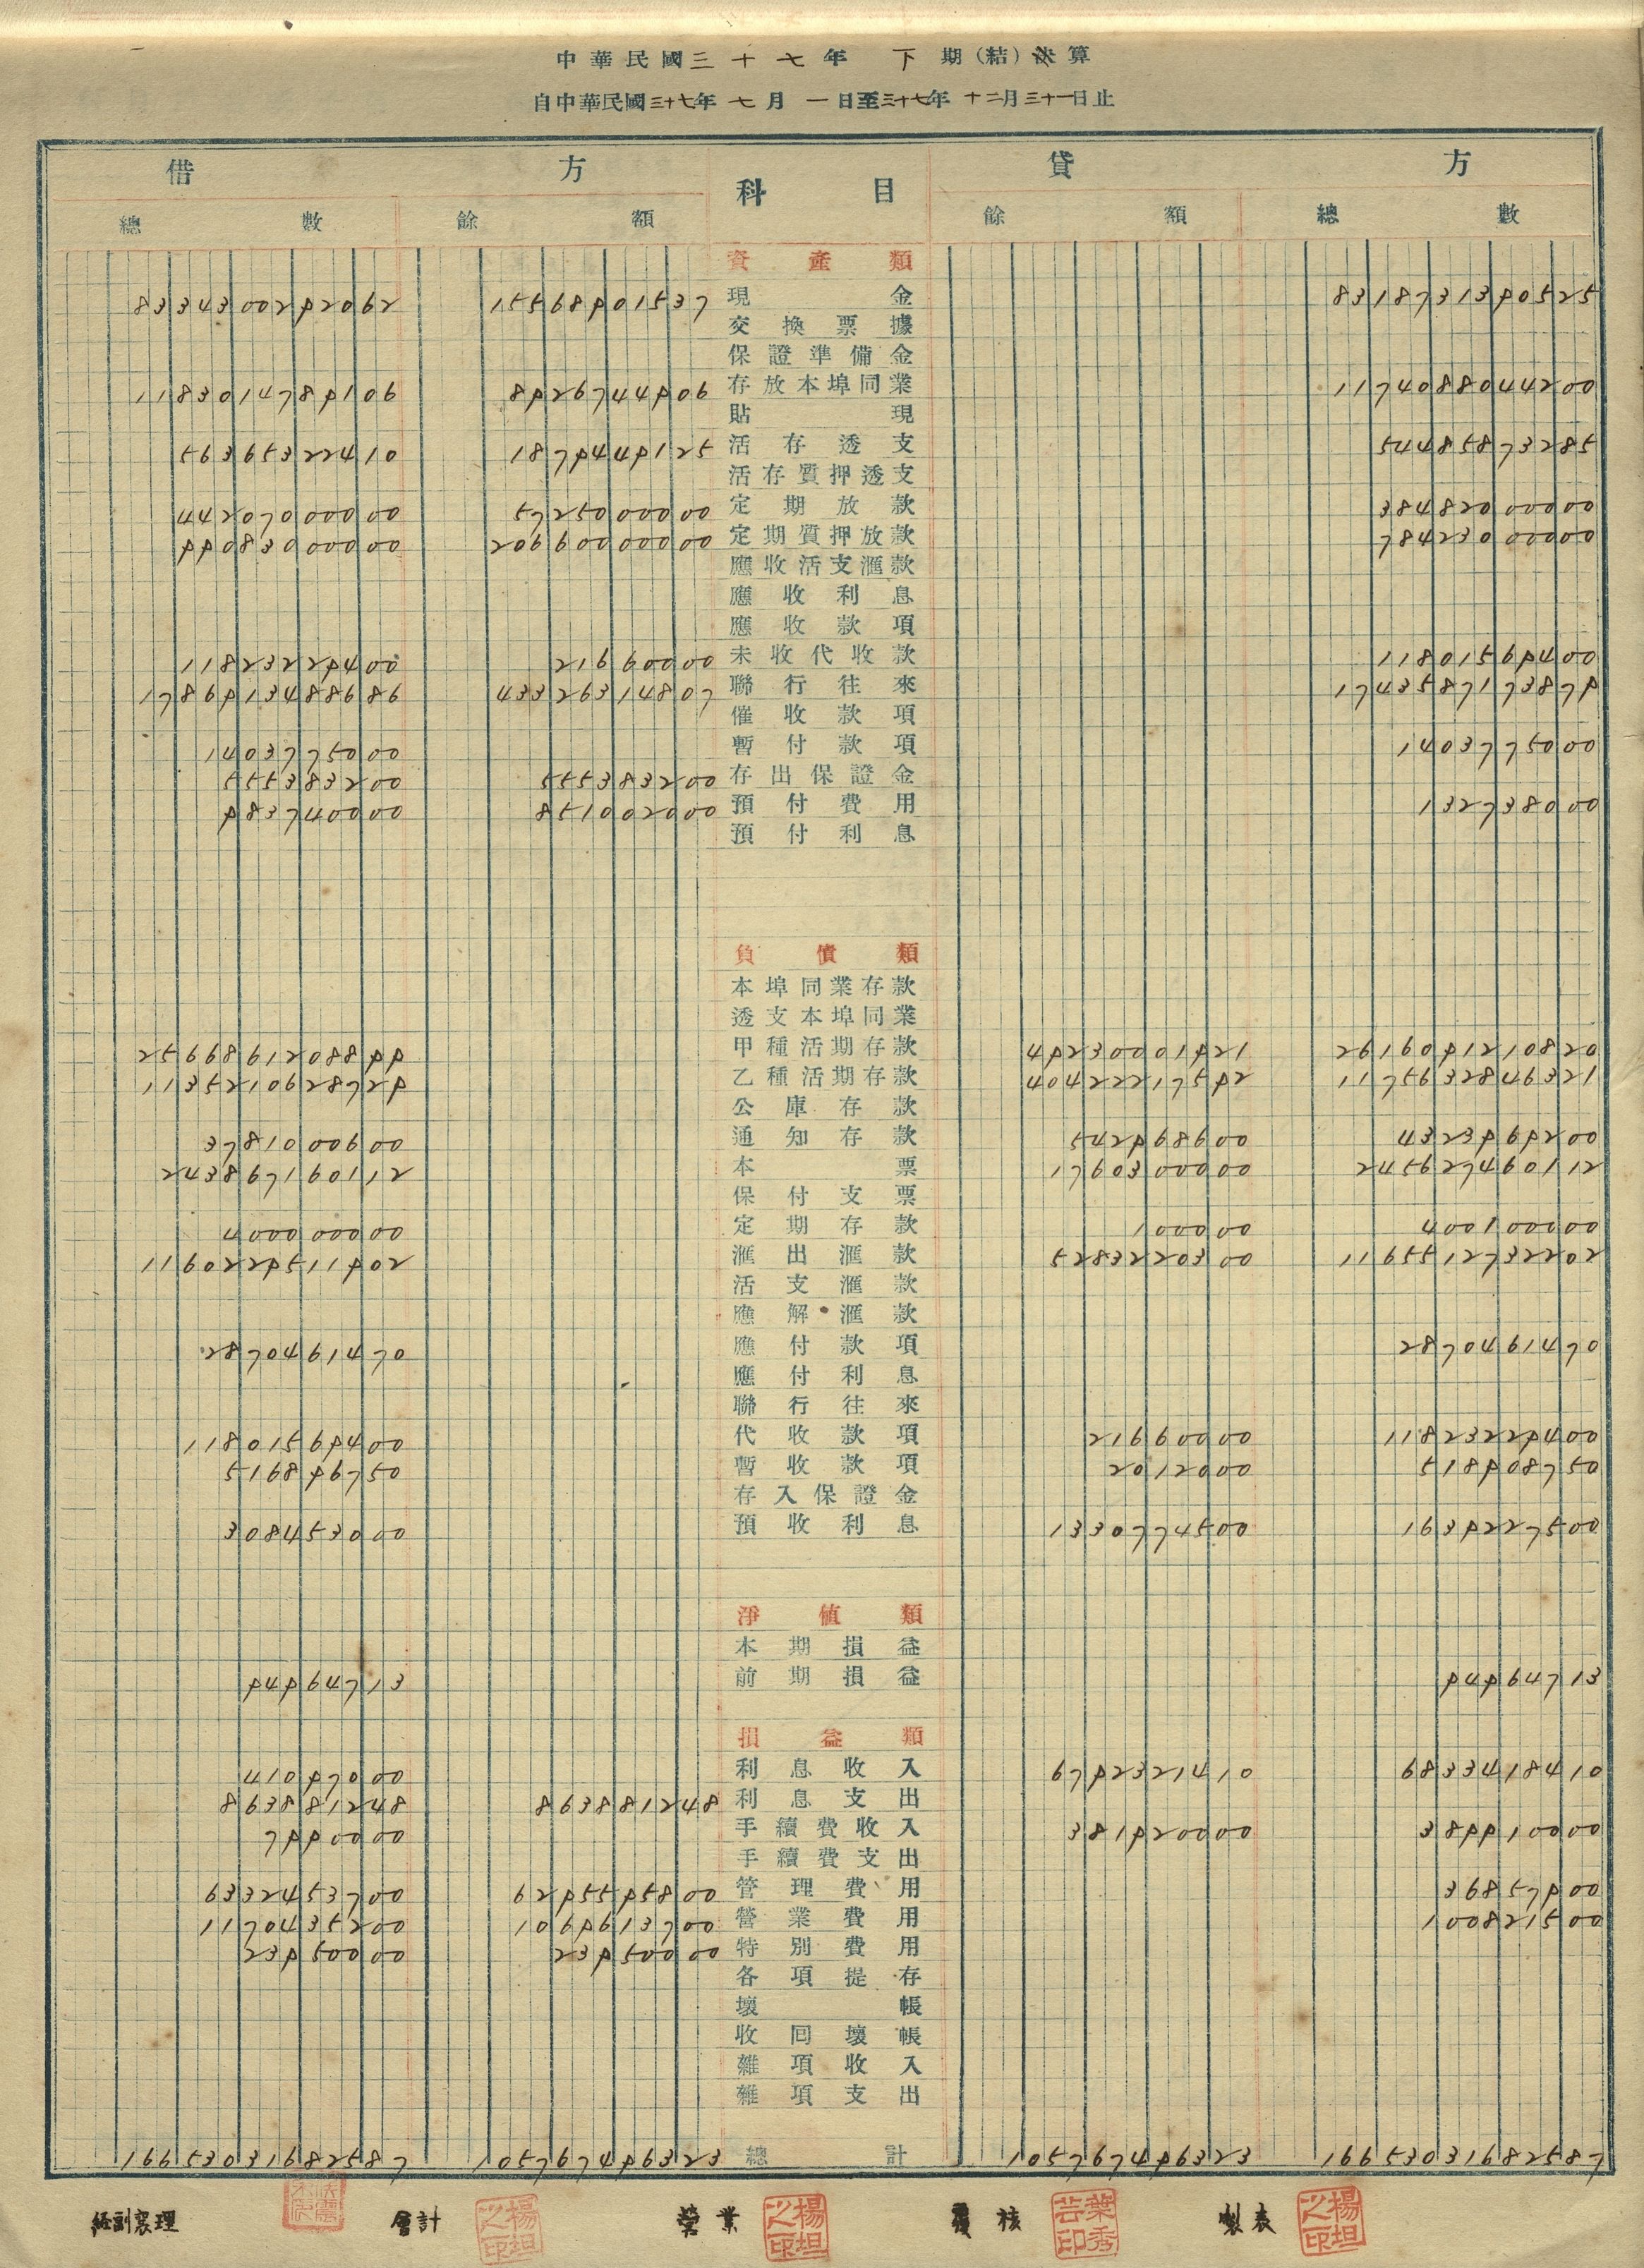 中華民國三十七年 下 期(結)決算
自中華民國三十七年 七月 一日至三十七年 十二月三十一日止
借 方 科 目 貸 方
總 數 餘 額 餘 額 總 數
資產類
8334300292062 15568901537 現金 8318731390525
交換票據
保證準備金
1183014789106 8926744906 存放本埠同業 1174088044200
貼現
56365322410 1879449125 活存透支 54485873285
活存質押透支
44207000000 5725000000 定期放款 38482000000
99083000000 20660000000 定期質押放款 78423000000
應收活支滙款
應收利息
應收款項
11823229400 21660000 未收代收款 11801569400
1786913488686 43326314807 聯行往來 1743587173879
催收款項
1403775000 暫付款項 1403775000
555383200 555383200 存出保證金
983740000 851002000 預付費用 132738000
預付利息
負債類
本埠同業存款
透支本埠同業
2566861208899 甲種活期存款 49230001921 2616091210820
1135210628729 乙種活期存款 40422217592 1175632846321
公庫存款
3781000600 通知存款 542968600 4323969200
243867160112 本票 1760300000 245627460112
保付支票
400000000 定期存款 100000 400100000
1160229511902 滙出滙款 5283220300 1165512732202
活支滙款
應解滙款
2870461470 應付款項 2870461470
應付利息
聯行往來
11801569400 代收款項 21660000 11823229400
516896750 暫收款項 2012000 518908750
存入保證金
308453000 預收利息 1330774500 1639227500
淨值類
本期損益
94964713 前期損益 94964713
損益類
41097000 利息收入 6792321410 6833418410
863881248 863881248 利息支出
7990000 手續費收入 381920000 389910000
手續費支出
6332453700 6295595800 管理費用 36857900
1170435200 1069613700 營業費用 100821500
23950000 23950000 特別費用
各項提存
壞帳
收回壞帳
雜項收入
雜項支出
16653031682587 105767496323 總計 105767496323 16653031682587
經副襄理 會計 楊坦之印 營業 楊坦之印 覆核 葉秀芸印 製表 楊坦之印